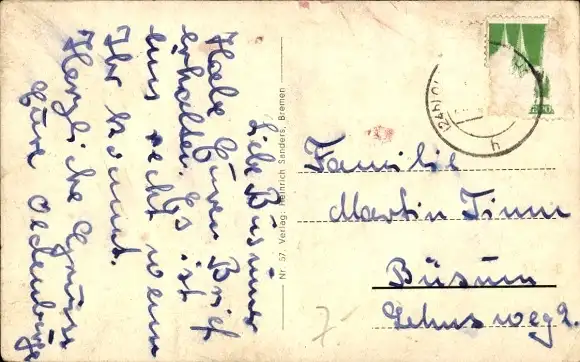 Liebe Büsumer
Habe Euren Brief
erhalten. Es ist
uns recht wenn
Ihr kommt.
Herzliche Grüsse
Eure Oldenburger
Nr 57. Verlag: Heinrich Sanders, Bremen
Familie
Martin Timm
Büsum
Lehnsweg 2.
7-
(24
4